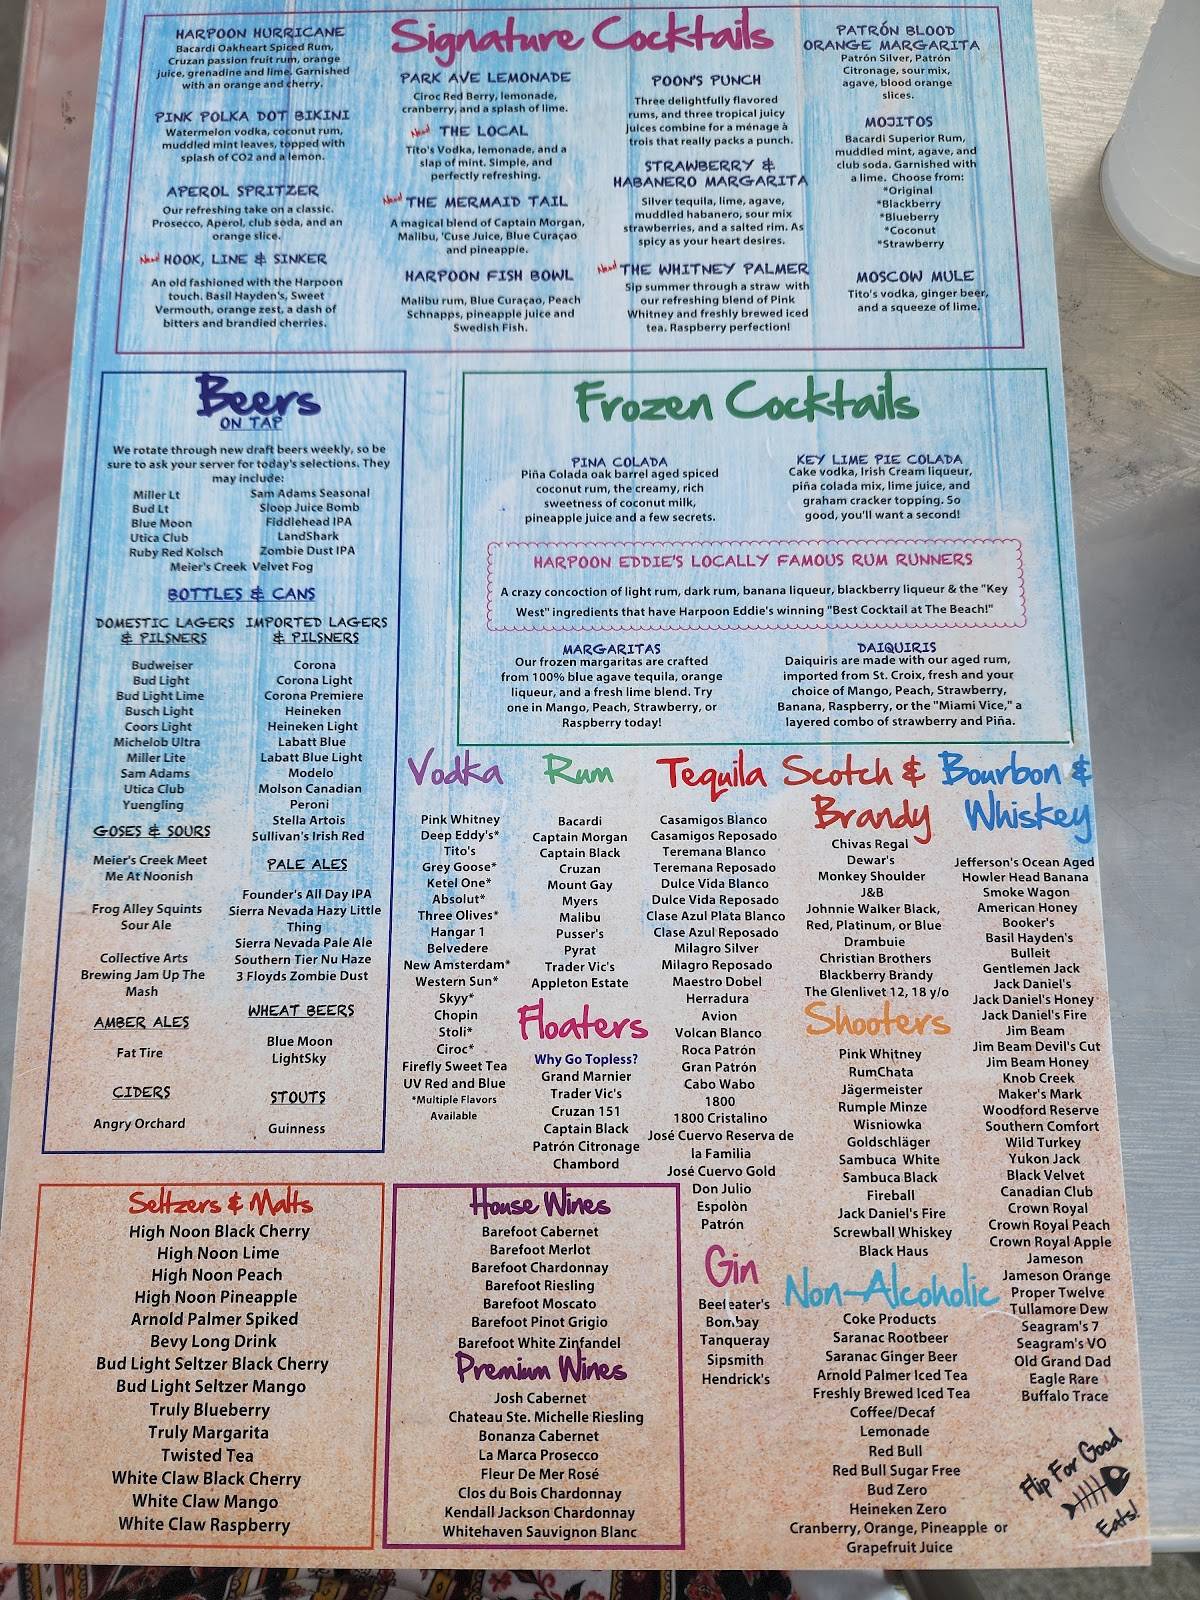 Signature Cocktails
HARPOON HURRICANE
Bacardi Oakheart Spiced Rum,
Cruzan passion fruit rum, orange
juice, grenadine and lime. Garnished
with an orange and cherry.
PINK POLKA DOT BIKINI
Watermelon vodka, coconut rum,
muddled mint leaves, topped with
splash of CO2 and a lemon.
APEROL SPRITZER
Our refreshing take on a classic.
Prosecco, Aperol, club soda, and an
orange slice.
New! HOOK, LINE & SINKER
An old fashioned with the Harpoon
touch. Basil Hayden's, Sweet
Vermouth, orange zest, a dash of
bitters and brandied cherries.
PARK AVE LEMONADE
Ciroc Red Berry, lemonade,
cranberry, and a splash of lime.
New! THE LOCAL
Tito's Vodka, lemonade, and a
slap of mint. Simple, and
perfectly refreshing.
New! THE MERMAID TAIL
A magical blend of Captain Morgan,
Malibu, 'Cuse Juice, Blue Curaçao
and pineapple.
HARPOON FISH BOWL
Malibu rum, Blue Curaçao, Peach
Schnapps, pineapple juice and
Swedish Fish.
POON'S PUNCH
Three delightfully flavored
rums, and three tropical juicy
juices combine for a ménage à
trois that really packs a punch.
STRAWBERRY &
HABANERO MARGARITA
Silver tequila, lime, agave,
muddled habanero, sour mix
strawberries, and a salted rim. As
spicy as your heart desires.
New! THE WHITNEY PALMER
Sip summer through a straw with
our refreshing blend of Pink
Whitney and freshly brewed iced
tea. Raspberry perfection!
PATRÓN BLOOD
ORANGE MARGARITA
Patrón Silver, Patrón
Citronage, sour mix,
agave, blood orange
slices.
MOJITOS
Bacardi Superior Rum,
muddled mint, agave, and
club soda. Garnished with
a lime. Choose from:
*Original
*Blackberry
*Blueberry
*Coconut
*Strawberry
MOSCOW MULE
Tito's vodka, ginger beer,
and a squeeze of lime.
Beers
ON TAP
We rotate through new draft beers weekly, so be
sure to ask your server for today's selections. They
may include:
Miller Lt
Bud Lt
Blue Moon
Utica Club
Ruby Red Kolsch
Sam Adams Seasonal
Sloop Juice Bomb
Fiddlehead IPA
LandShark
Zombie Dust IPA
Meier's Creek Velvet Fog
BOTTLES & CANS
DOMESTIC LAGERS
& PILSNERS
Budweiser
Bud Light
Bud Light Lime
Busch Light
Coors Light
Michelob Ultra
Miller Lite
Sam Adams
Utica Club
Yuengling
GOSES & SOURS
Meier's Creek Meet
Me At Noonish
Frog Alley Squints
Sour Ale
Collective Arts
Brewing Jam Up The
Mash
AMBER ALES
Fat Tire
CIDERS
Angry Orchard
IMPORTED LAGERS
& PILSNERS
Corona
Corona Light
Corona Premiere
Heineken
Heineken Light
Labatt Blue
Labatt Blue Light
Modelo
Molson Canadian
Peroni
Stella Artois
Sullivan's Irish Red
PALE ALES
Founder's All Day IPA
Sierra Nevada Hazy Little
Thing
Sierra Nevada Pale Ale
Southern Tier Nu Haze
3 Floyds Zombie Dust
WHEAT BEERS
Blue Moon
LightSky
STOUTS
Guinness
Frozen Cocktails
PINA COLADA
Piña Colada oak barrel aged spiced
coconut rum, the creamy, rich
sweetness of coconut milk,
pineapple juice and a few secrets.
KEY LIME PIE COLADA
Cake vodka, Irish Cream liqueur,
piña colada mix, lime juice, and
graham cracker topping. So
good, you'll want a second!
HARPOON EDDIE'S LOCALLY FAMOUS RUM RUNNERS
A crazy concoction of light rum, dark rum, banana liqueur, blackberry liqueur & the "Key
West" ingredients that have Harpoon Eddie's winning "Best Cocktail at The Beach!"
MARGARITAS
Our frozen margaritas are crafted
from 100% blue agave tequila, orange
liqueur, and a fresh lime blend. Try
one in Mango, Peach, Strawberry, or
Raspberry today!
DAIQUIRIS
Daiquiris are made with our aged rum,
imported from St. Croix, fresh and your
choice of Mango, Peach, Strawberry,
Banana, Raspberry, or the "Miami Vice," a
layered combo of strawberry and Piña.
Vodka
Pink Whitney
Deep Eddy's*
Tito's
Grey Goose*
Ketel One*
Absolut*
Three Olives*
Hangar 1
Belvedere
New Amsterdam*
Western Sun*
Skyy*
Chopin
Stoli*
Ciroc*
Firefly Sweet Tea
UV Red and Blue
*Multiple Flavors
Available
Rum
Bacardi
Captain Morgan
Captain Black
Cruzan
Mount Gay
Myers
Malibu
Pusser's
Pyrat
Trader Vic's
Appleton Estate
Floaters
Why Go Topless?
Grand Marnier
Trader Vic's
Cruzan 151
Captain Black
Patrón Citronage
Chambord
Tequila
Casamigos Blanco
Casamigos Reposado
Teremana Blanco
Teremana Reposado
Dulce Vida Blanco
Dulce Vida Reposado
Clase Azul Plata Blanco
Clase Azul Reposado
Milagro Silver
Milagro Reposado
Maestro Dobel
Herradura
Avion
Volcan Blanco
Roca Patrón
Gran Patrón
Cabo Wabo
1800
1800 Cristalino
José Cuervo Reserva de
la Familia
José Cuervo Gold
Don Julio
Espolòn
Patrón
Gin
Beefeater's
Bombay
Tanqueray
Sipsmith
Hendrick's
Scotch &
Brandy
Chivas Regal
Dewar's
Monkey Shoulder
J&B
Johnnie Walker Black,
Red, Platinum, or Blue
Drambuie
Christian Brothers
Blackberry Brandy
The Glenlivet 12, 18 y/o
Shooters
Pink Whitney
RumChata
Jägermeister
Rumple Minze
Wisniowka
Goldschläger
Sambuca White
Sambuca Black
Fireball
Jack Daniel's Fire
Screwball Whiskey
Black Haus
Non-Alcoholic
Coke Products
Saranac Rootbeer
Saranac Ginger Beer
Arnold Palmer Iced Tea
Freshly Brewed Iced Tea
Coffee/Decaf
Lemonade
Red Bull
Red Bull Sugar Free
Bud Zero
Heineken Zero
Cranberry, Orange, Pineapple or
Grapefruit Juice
Bourbon &
Whiskey
Jefferson's Ocean Aged
Howler Head Banana
Smoke Wagon
American Honey
Booker's
Basil Hayden's
Bulleit
Gentlemen Jack
Jack Daniel's
Jack Daniel's Honey
Jack Daniel's Fire
Jim Beam
Jim Beam Devil's Cut
Jim Beam Honey
Knob Creek
Maker's Mark
Woodford Reserve
Southern Comfort
Wild Turkey
Yukon Jack
Black Velvet
Canadian Club
Crown Royal
Crown Royal Peach
Crown Royal Apple
Jameson
Jameson Orange
Proper Twelve
Tullamore Dew
Seagram's 7
Seagram's VO
Old Grand Dad
Eagle Rare
Buffalo Trace
Seltzers & Malts
High Noon Black Cherry
High Noon Lime
High Noon Peach
High Noon Pineapple
Arnold Palmer Spiked
Bevy Long Drink
Bud Light Seltzer Black Cherry
Bud Light Seltzer Mango
Truly Blueberry
Truly Margarita
Twisted Tea
White Claw Black Cherry
White Claw Mango
White Claw Raspberry
House Wines
Barefoot Cabernet
Barefoot Merlot
Barefoot Chardonnay
Barefoot Riesling
Barefoot Moscato
Barefoot Pinot Grigio
Barefoot White Zinfandel
Premium Wines
Josh Cabernet
Chateau Ste. Michelle Riesling
Bonanza Cabernet
La Marca Prosecco
Fleur De Mer Rosé
Clos du Bois Chardonnay
Kendall Jackson Chardonnay
Whitehaven Sauvignon Blanc
Flip For Good
Eats!